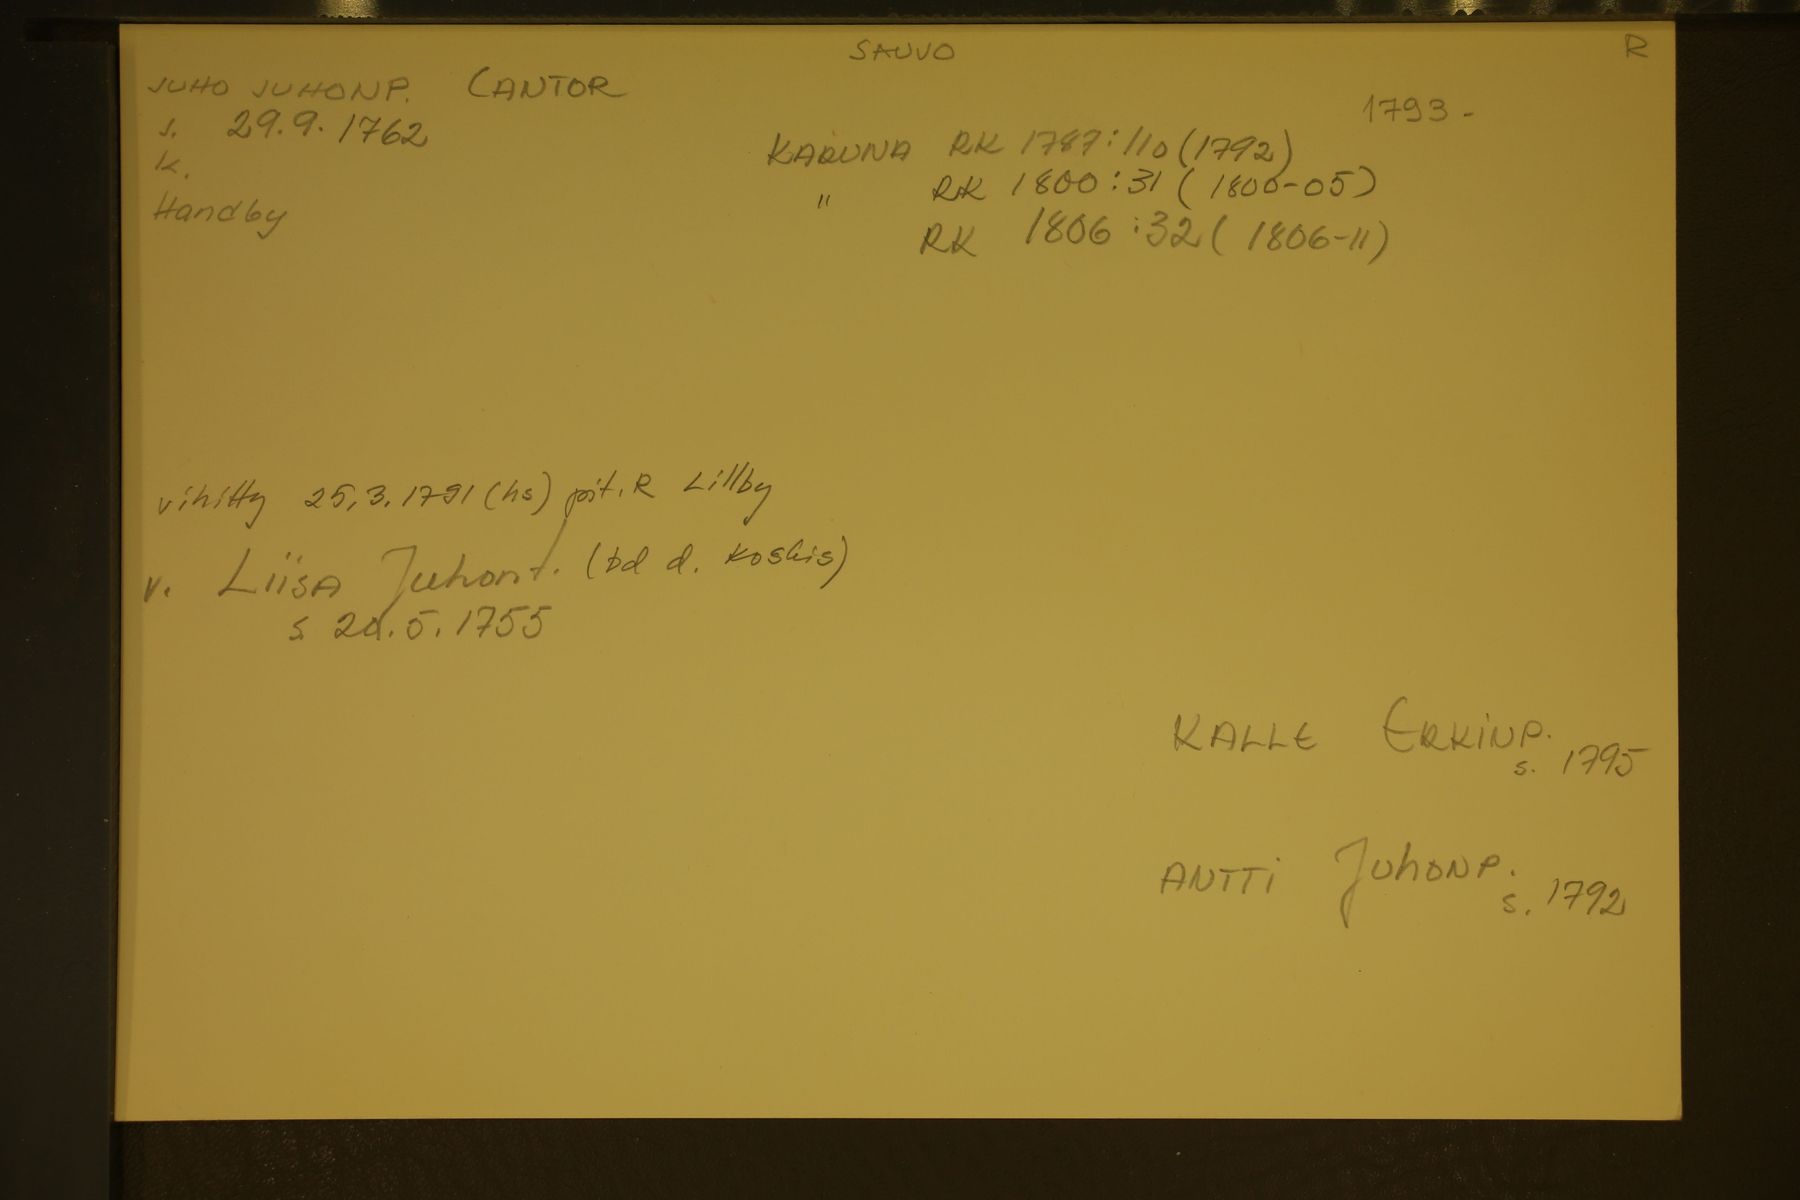 SAUVO
R
JUHO JUHONP. CANTOR
s. 29.9.1762
k.
Handby
1793-
KARUNA RK 1787:110 (1792)
" RK 1800:31 (1800-05)
RK 1806:32 (1806-11)
vihitty 25.3.1791 (hs) pit. R Lillby
v. LiiSA Juhont. (bd d. Koskis)
s 20.5.1755
KALLE ERKiNP.
s. 1795
ANTTi JUhONP.
s. 1792